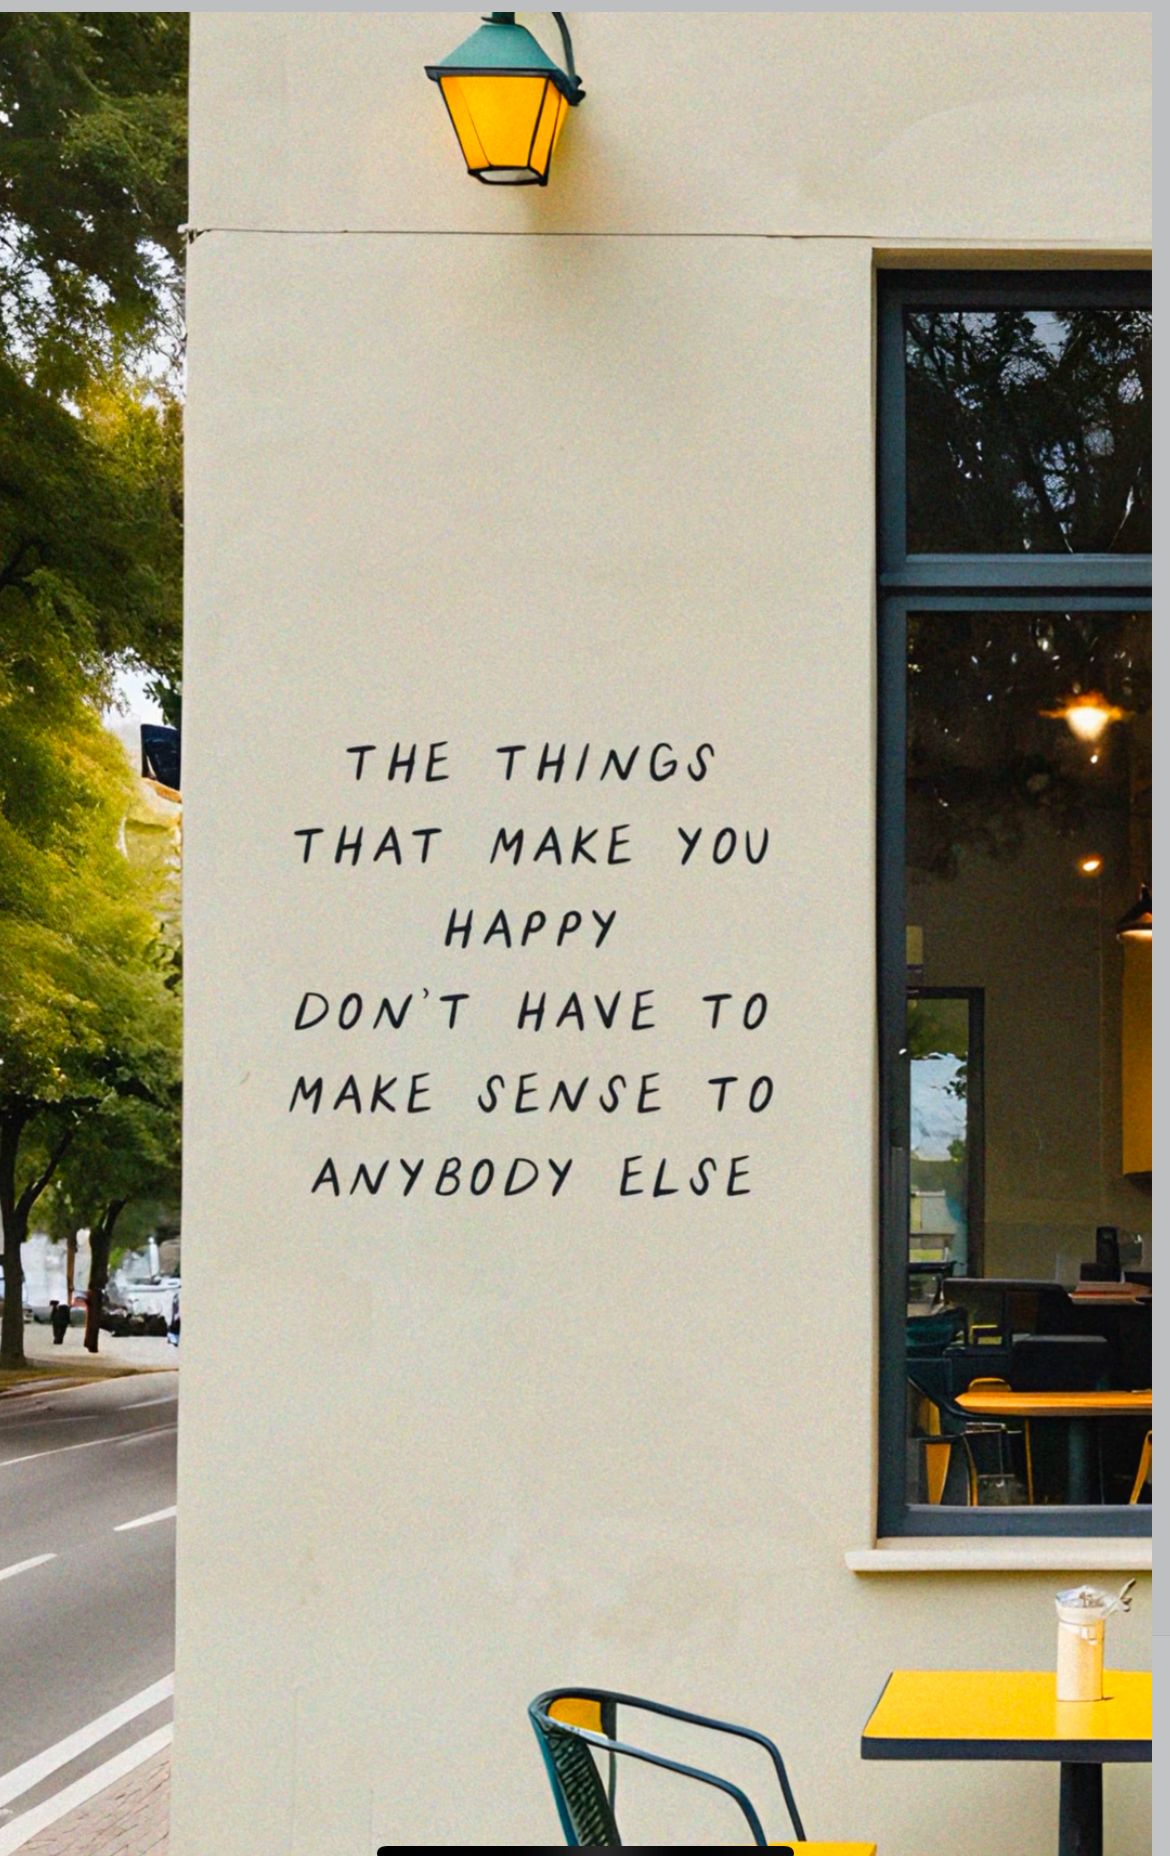 THE THINGS
THAT MAKE YOU
HAPPY
DON'T HAVE TO
MAKE SENSE TO
ANYBODY ELSE